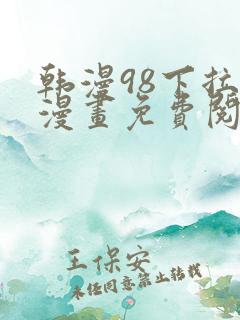 韩漫98下拉
漫畫免費閱
王保安
未经同意禁止转载